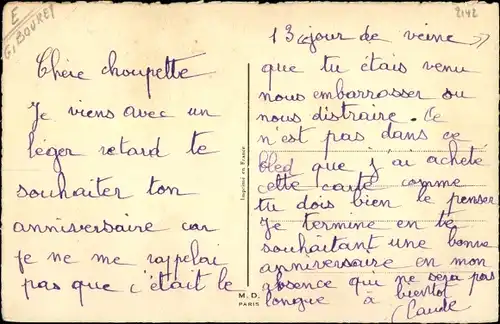 E
G. BOURET
2142
Chère choupette
Je viens avec un
léger retard te
souhaiter ton
anniversaire car
je ne me rappelai
pas que c'était le
13 jour de veine
que tu étais venu
nous embarrasser ou
nous distraire. Ce
n'est pas dans ce
bled que j'ai acheté
cette carte comme
tu dois bien le penser
Je termine en te
souhaitant une bonne
anniversaire en mon
absence qui ne sera pas
longue à bientot
Claude
Imprimé en France
M. D.
PARIS